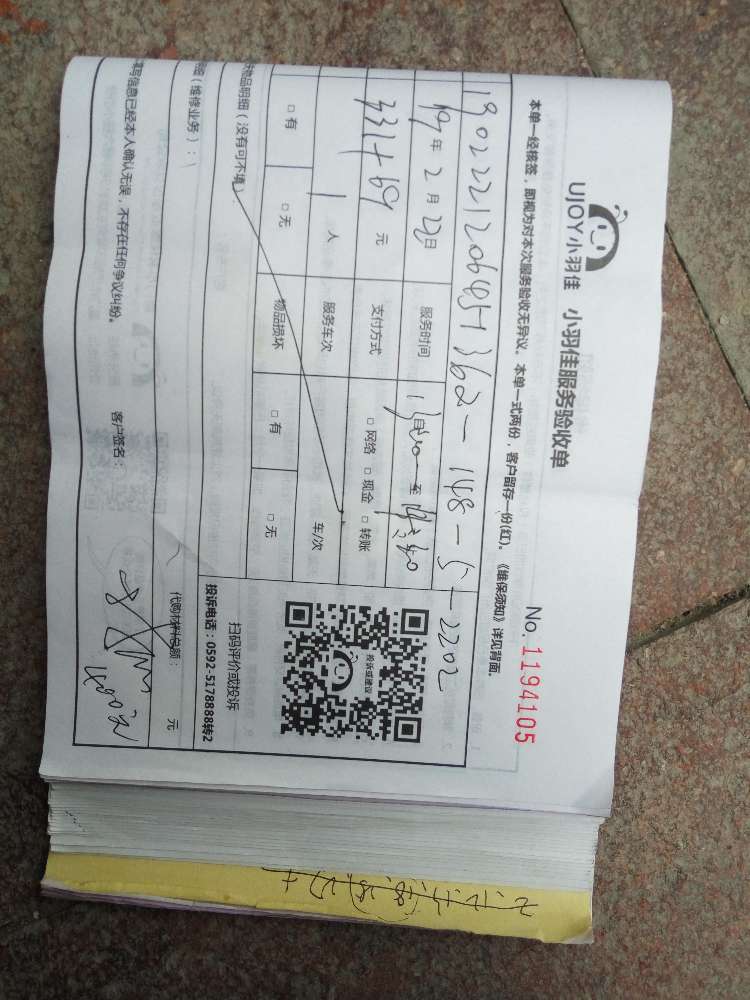 UJOY小羽佳 小羽佳服务验收单
No. 1194105
本单一经核签，即视为对本次服务验收无异议。本单一式两份，客户留存一份(红)。《维保须知》详见背面。
年 2 月 22 日 服务时间 至
331+69 元 支付方式 □ 网络 □ 现金 □ 转账
1 人 服务车次 车/次
□ 有 □ 无 物品损坏 □ 有 □ 无
投诉或建议
扫码评价或投诉
投诉电话：0592-5178888转2
物品明细（没有可不填）
（维修业务）：
代购材料总额： 元
填写信息已经本人确认无误，不存在任何争议纠纷。 客户签名：